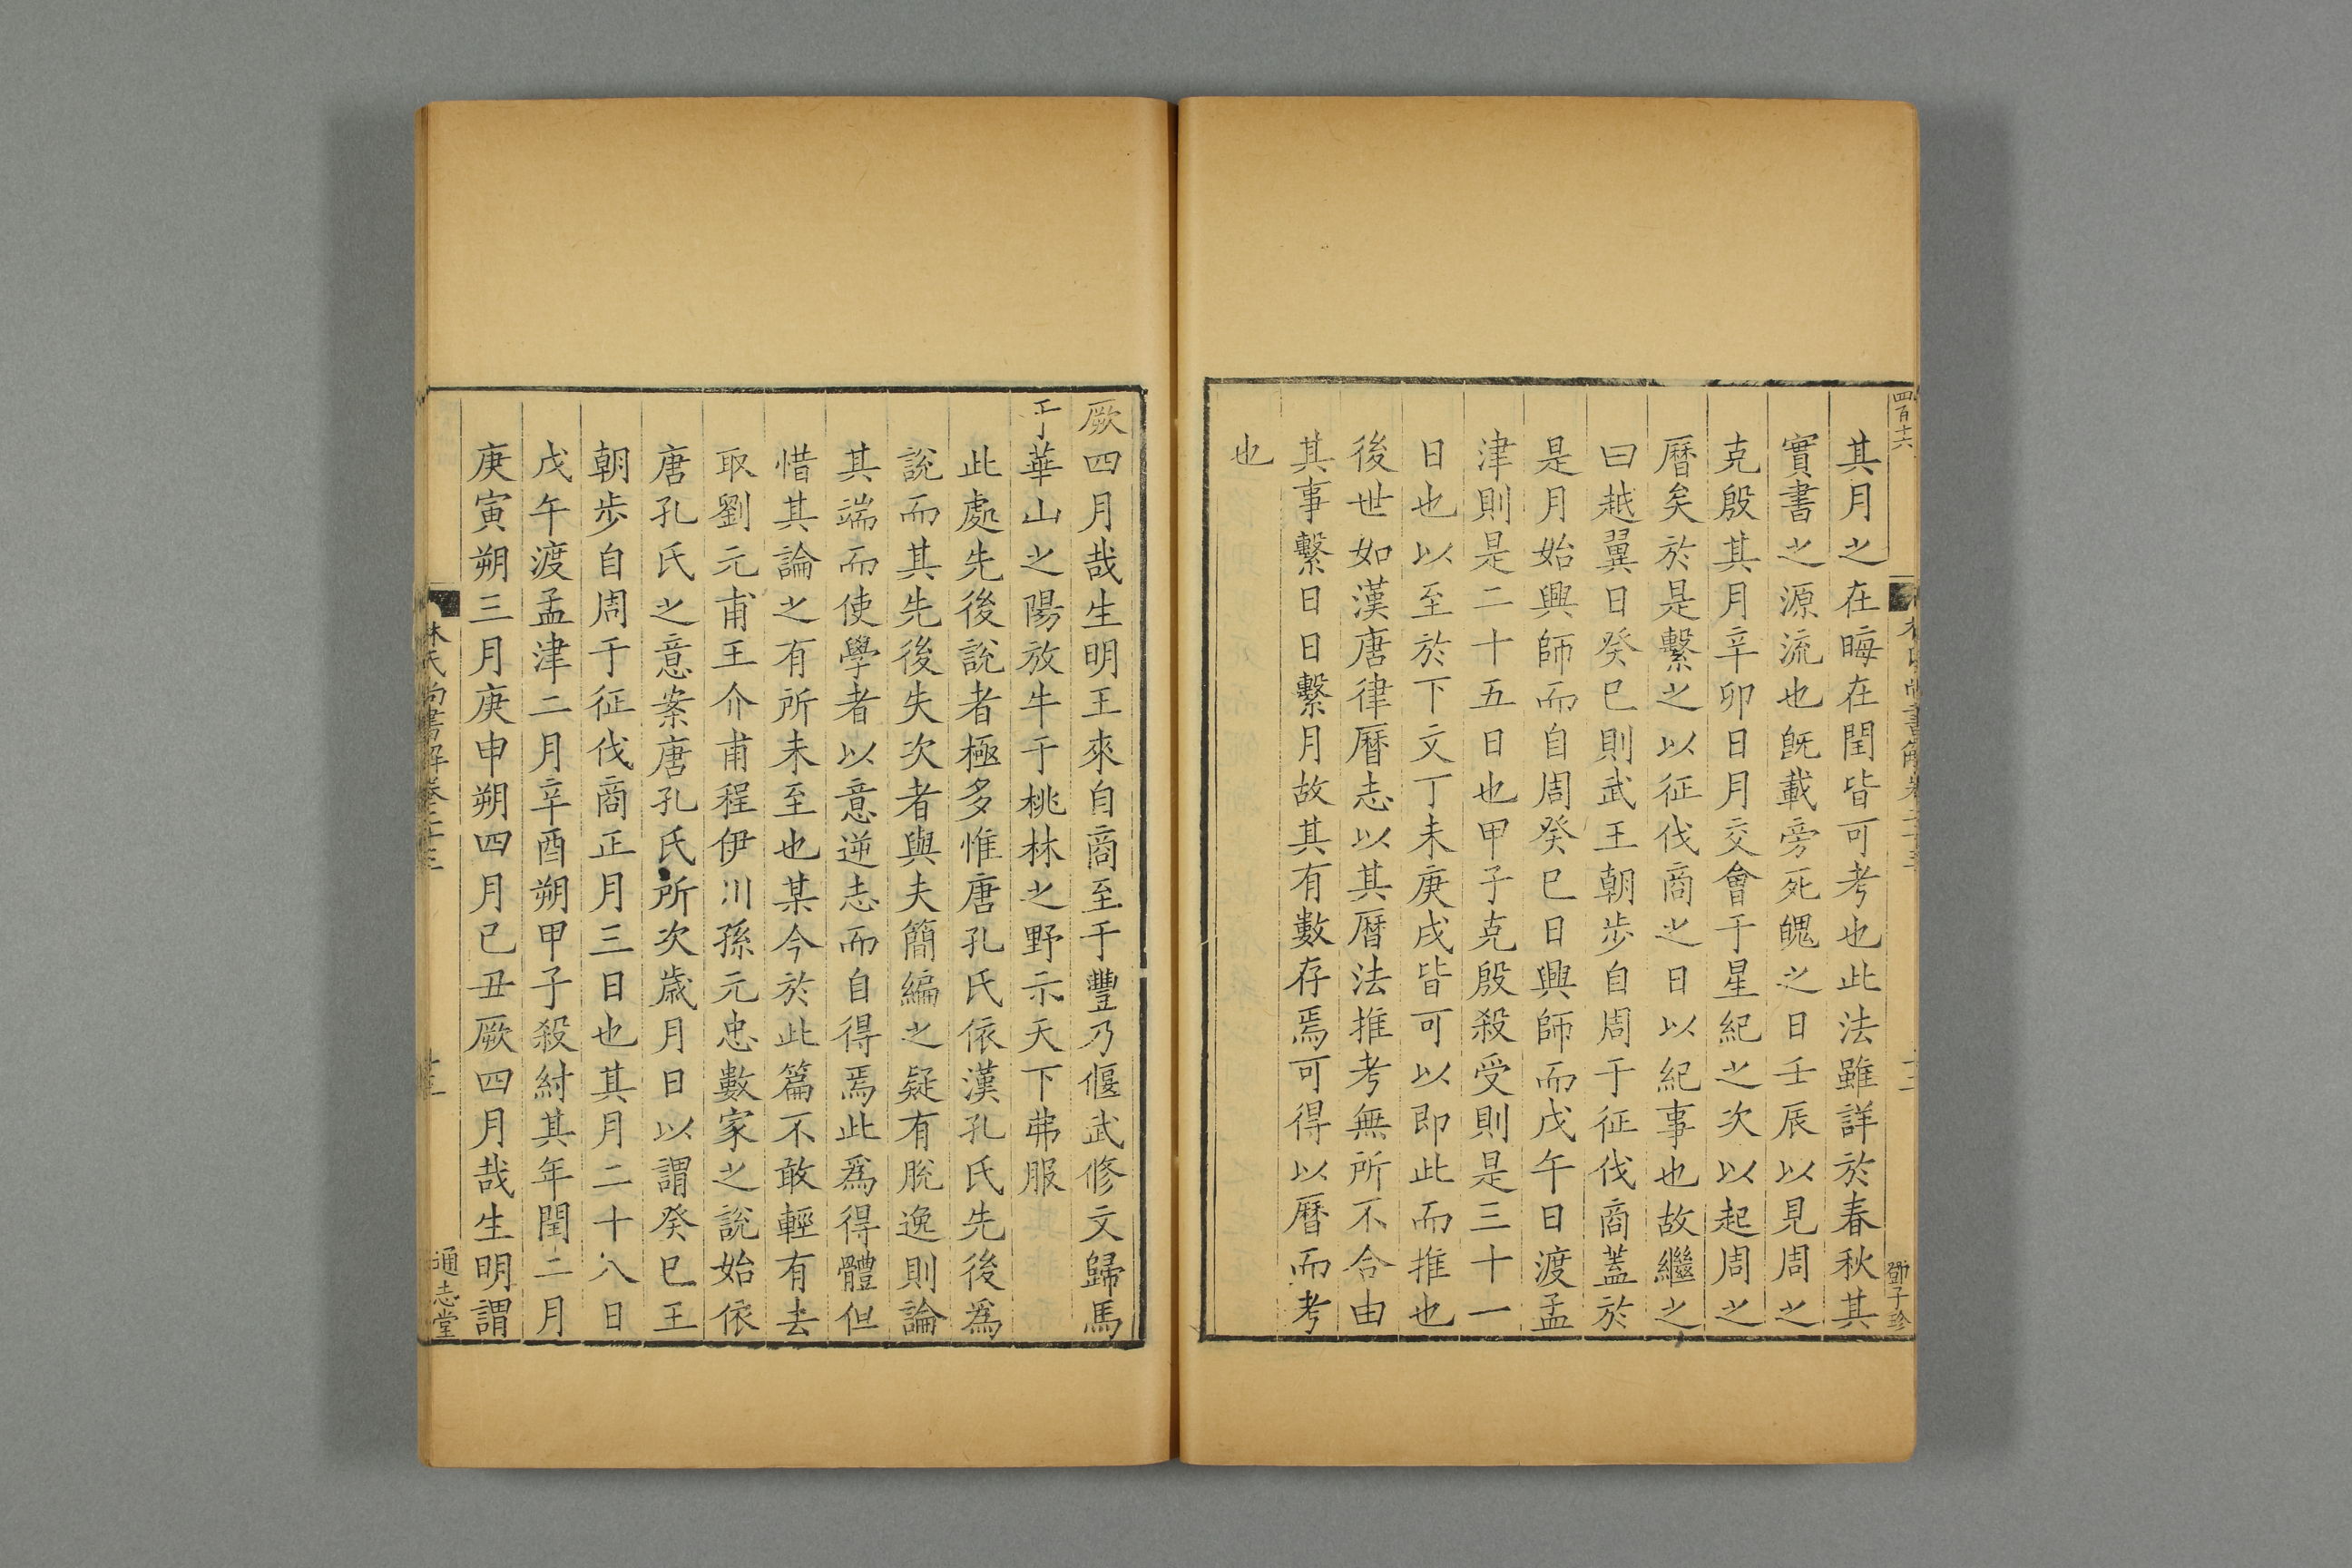 四百十六
鄧子珍
其月之在晦在閏皆可考也此法雖詳於春秋其
實書之源流也旣載旁死魄之日壬辰以見周之
克殷其月辛卯日月交會于星紀之次以起周之
曆矣於是繫之以征伐商之日以紀事也故繼之
曰越翼日癸巳則武王朝步自周于征伐商蓋於
是月始興師而自周癸巳日興師而戊午日渡孟
津則是二十五日也甲子克殷殺受則是三十一
日也以至於下文丁未庚戌皆可以即此而推也
後世如漢唐律曆志以其曆法推考無所不合由
其事繫日日繫月故其有數存焉可得以曆而考
也
厥四月哉生明王來自商至于豐乃偃武修文歸馬
于華山之陽放牛于桃林之野示天下弗服
此處先後說者極多惟唐孔氏依漢孔氏先後爲
說而其先後失次者與夫簡編之疑有脫逸則論
其端而使學者以意逆志而自得焉此爲得體但
惜其論之有所未至也某今於此篇不敢輕有去
取劉元甫王介甫程伊川孫元忠數家之說始依
唐孔氏之意案唐孔氏所次歲月日以謂癸巳王
朝步自周于征伐商正月三日也其月二十八日
戊午渡孟津二月辛酉朔甲子殺紂其年閏二月
庚寅朔三月庚申朔四月己丑厥四月哉生明謂
林氏尚書解卷二十三
通志堂